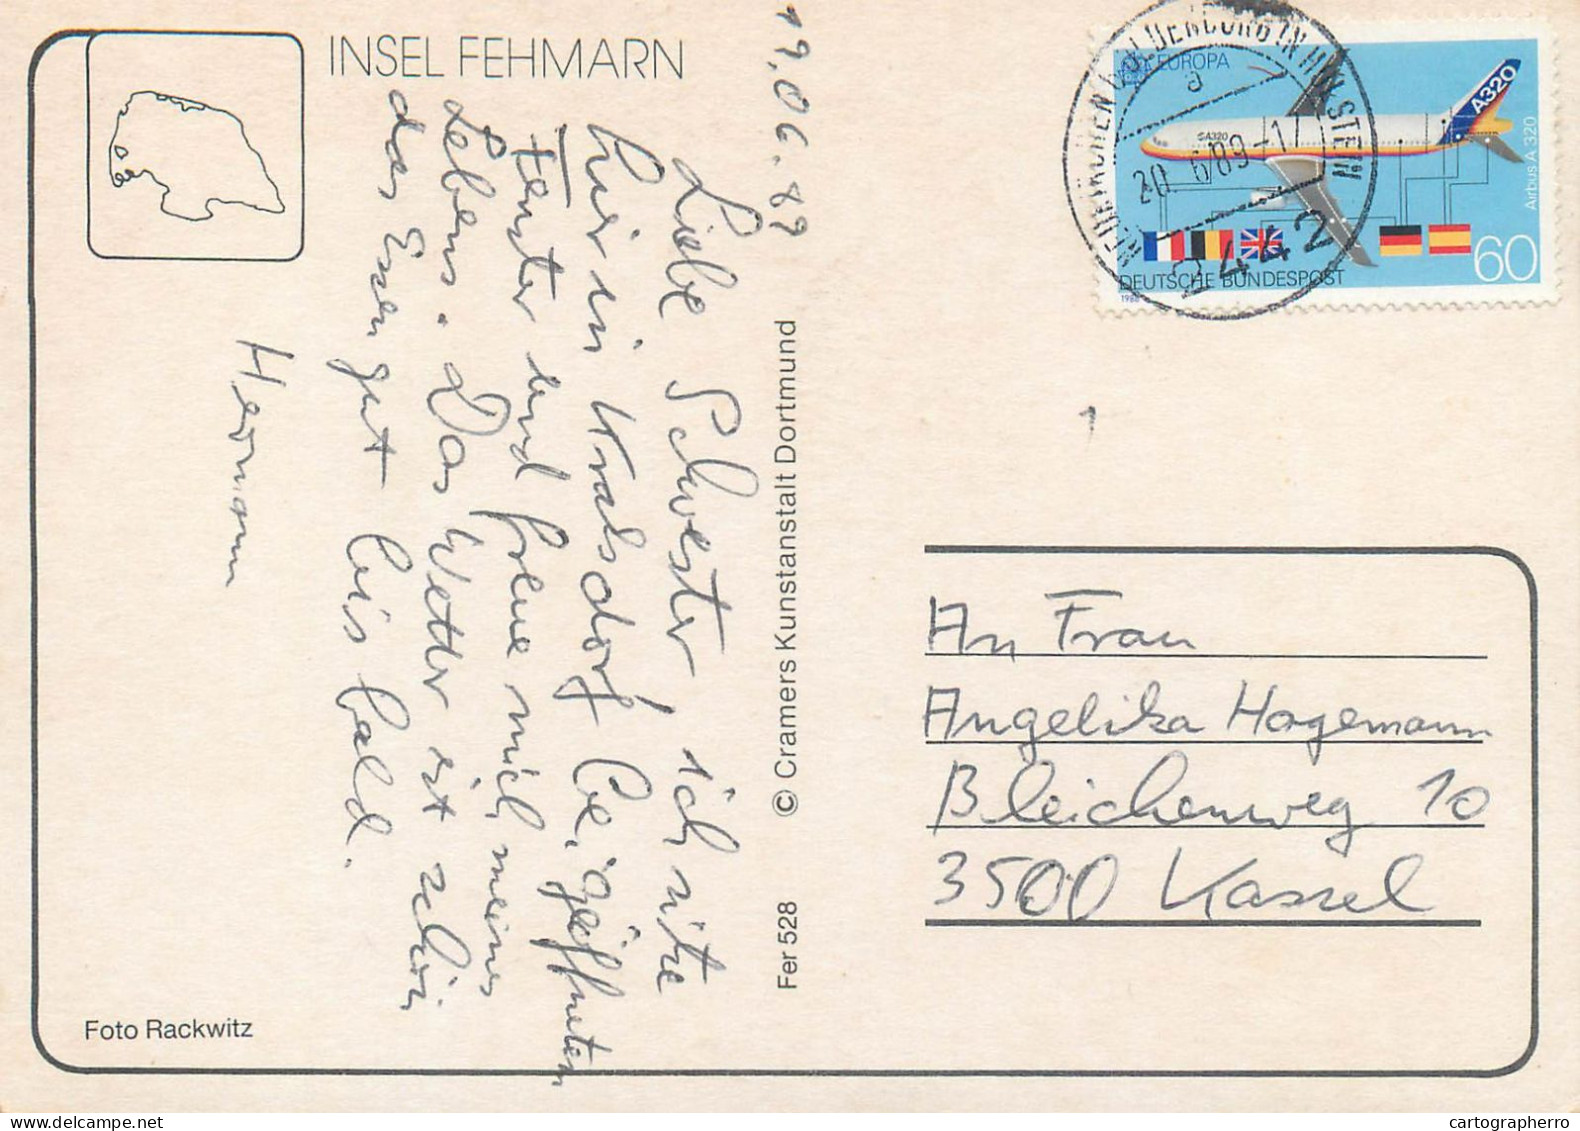 INSEL FEHMARN
19.06.89
Liebe Schwester, ich sitze
hier in Kratsdorf bei geöffneten
Fenster und freue mich meines
Lebens. Das Wetter ist schön
das Essen gut bis bald.
Hermann
Foto Rackwitz
Fer 528 © Cramers Kunstanstalt Dortmund
EUROPA
A320
A320
Airbus A 320
60
DEUTSCHE BUNDESPOST
1988
a
20. 6.89-17
2442
1
An Frau
Angelika Hagemann
Bleichenweg 10
3500 Kassel
cartographerro
cartographerro.delcampe.net